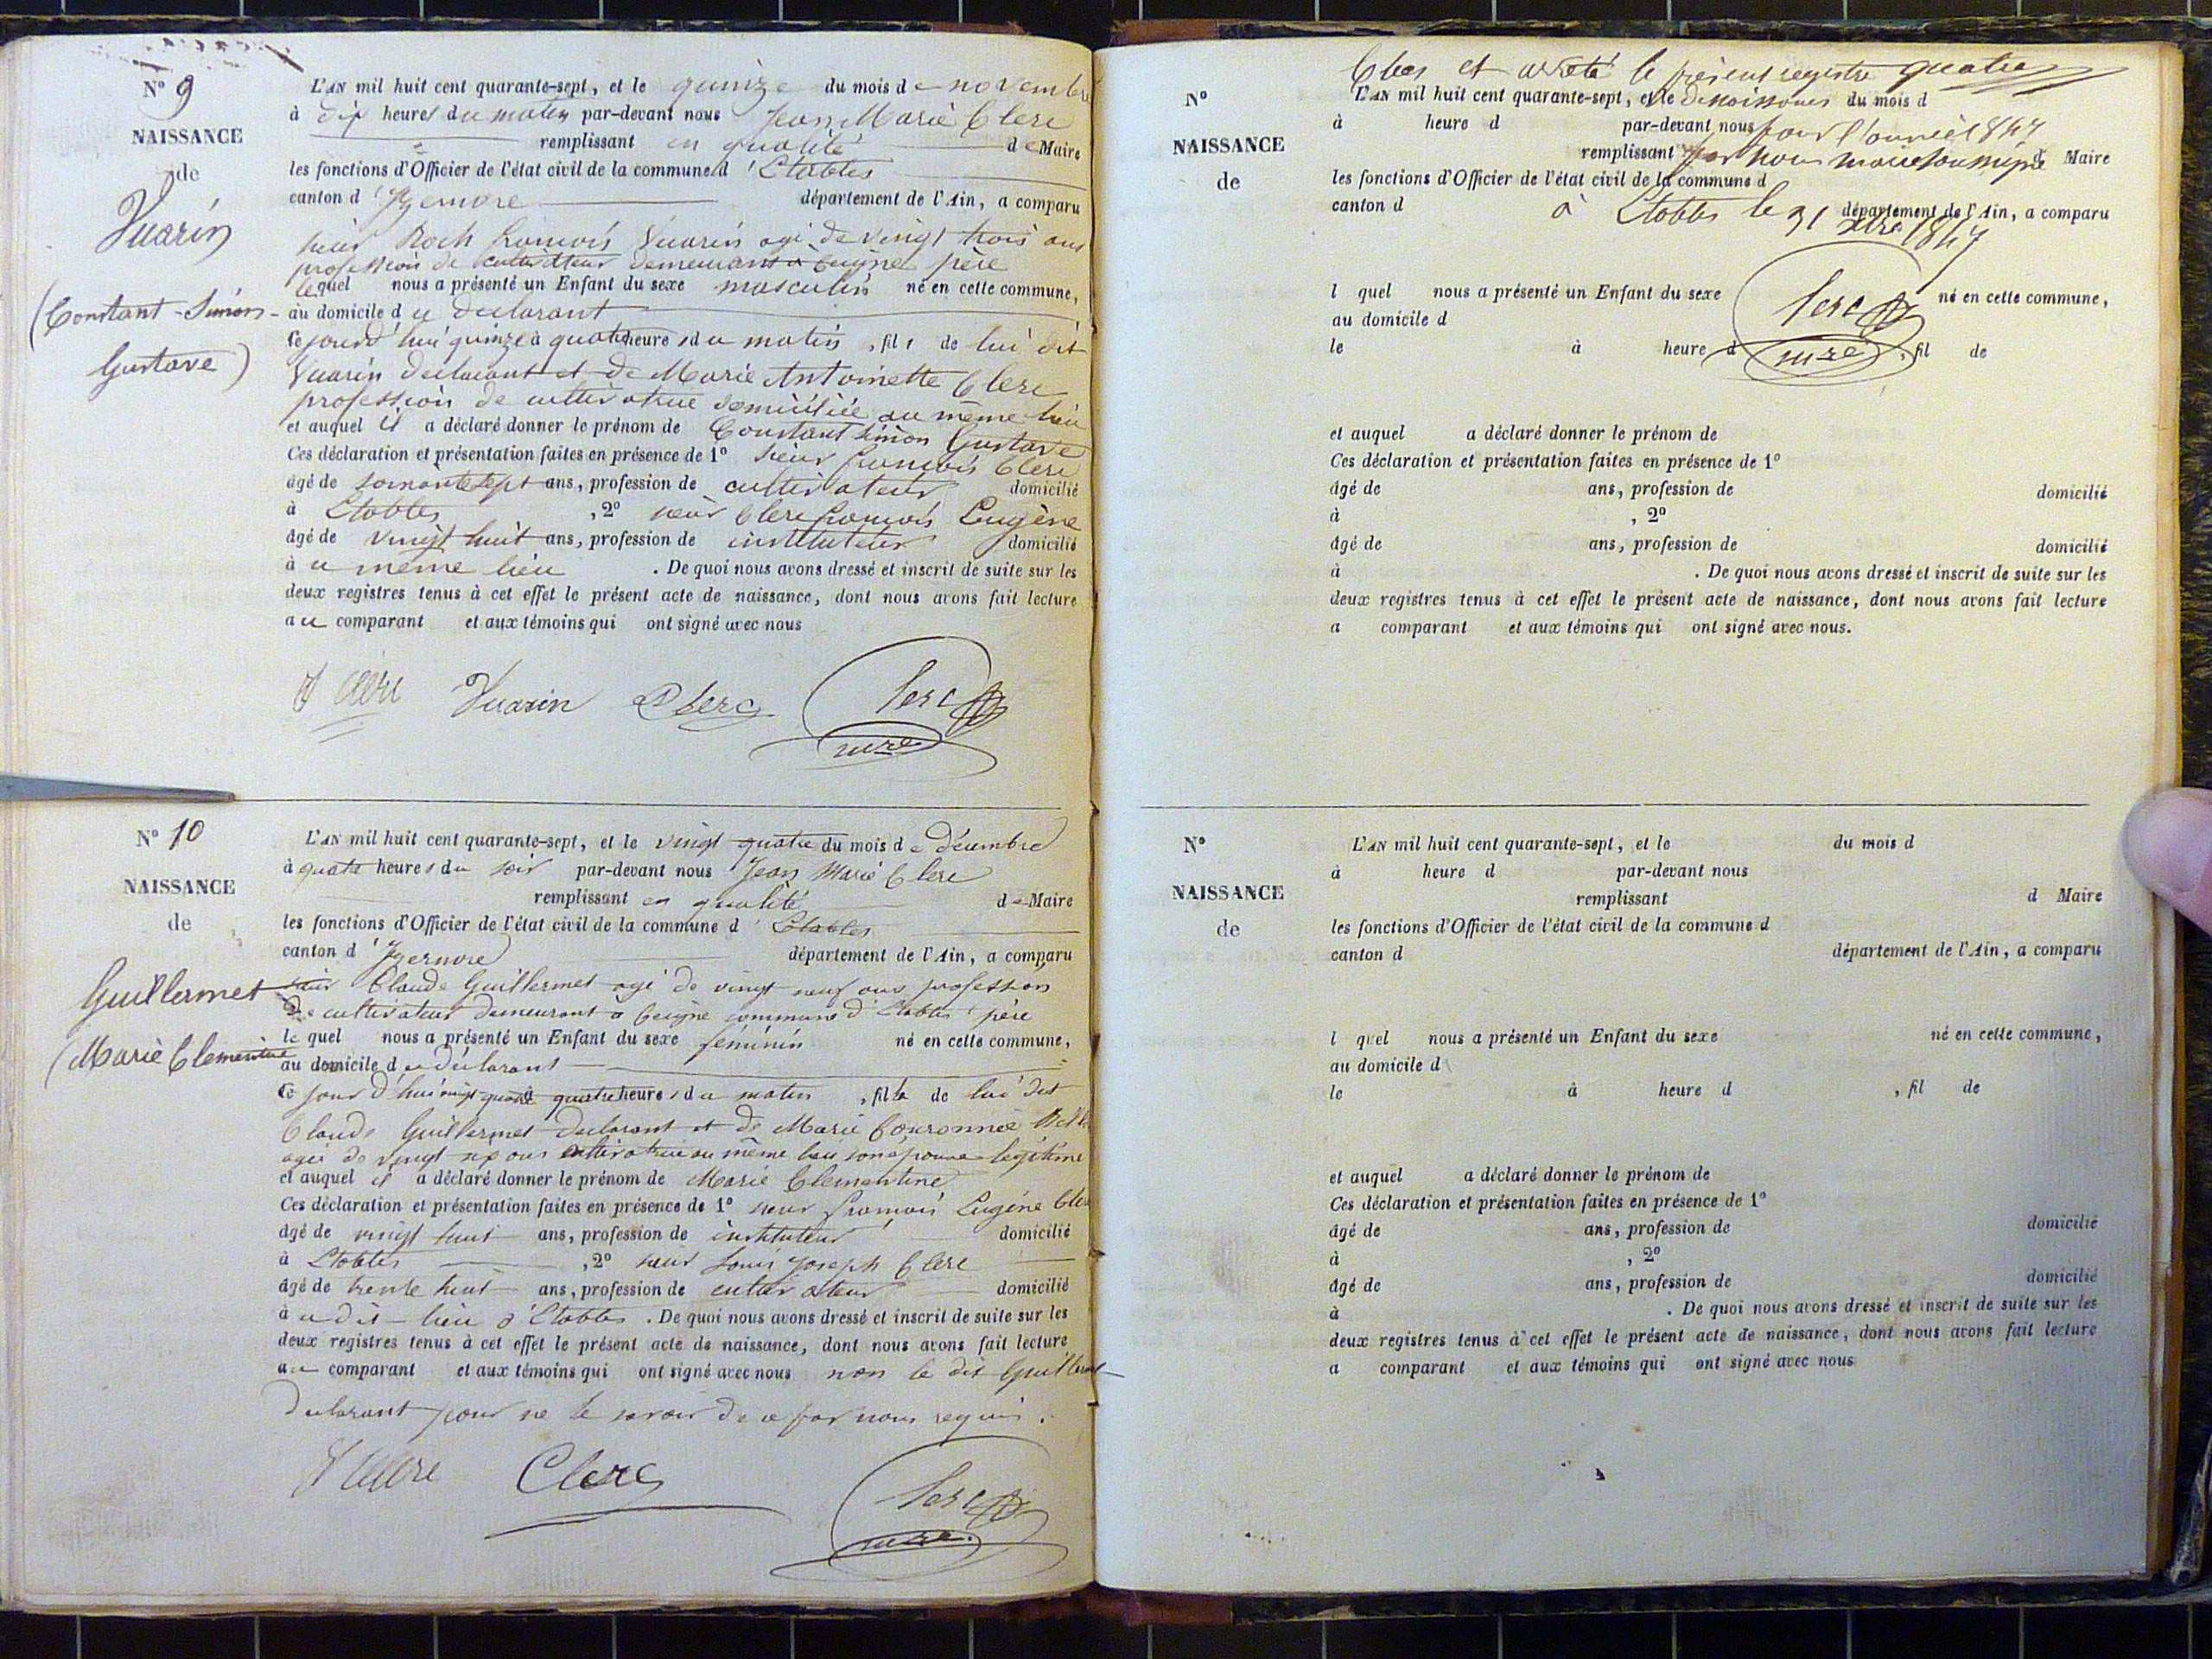 N° 9
NAISSANCE
de
Vuarin
(Constant-Simon-
Gustave)
L'AN mil huit cent quarante-sept, et le quinze du mois de novembre
à dix heures du matin par-devant nous Jean Marie Clerc
remplissant en qualité de Maire
les fonctions d'Officier de l'état civil de la commune d'Etables
canton d'Izernore département de l'Ain, a comparu
sieur Roch françois Vuarin agé de vingt trois ans
profession de cultivateur demeurant à Ceigne père
lequel nous a présenté un Enfant du sexe masculin né en cette commune,
au domicile du declarant
ce jourd'hui quinze à quatre heures du matin, fils de lui dit
Vuarin declarant et de Marie Antoinette Clerc
profession de cultivatrice domiciliée au même lieu
et auquel il a déclaré donner le prénom de Constant Simon Gustave
Ces déclaration et présentation faites en présence de 1° sieur françois Clerc
âgé de soixante sept ans, profession de cultivateur domicilié
à Etables, 2° sieur Clerc françois Eugène
âgé de vingt huit ans, profession de instituteur domicilié
à u même lieu. De quoi nous avons dressé et inscrit de suite sur les
deux registres tenus à cet effet le présent acte de naissance, dont nous avons fait lecture
au comparant et aux témoins qui ont signé avec nous
Vuarin Clerc Clerc
mre
N° 10
NAISSANCE
de
Guillermet
(Marie Clementine
L'AN mil huit cent quarante-sept, et le vingt quatre du mois de Décembre
à quatre heures du soir par-devant nous Jean Marie Clerc
remplissant en qualité de Maire
les fonctions d'Officier de l'état civil de la commune d'Etables
canton d'Izernore département de l'Ain, a comparu
sieur Claude Guillermet agé de vingt neuf ans profession
de cultivateur demeurant à Ceigne commune d'Etables père
lequel nous a présenté un Enfant du sexe féminin né en cette commune,
au domicile du déclarant
ce jour d'hui vingt quatre à quatre heures du matin, fille de lui dit
Claude Guillermet declarant et de Marie Couronnée
agée de vingt six ans cultivatrice au même lieu son épouse légitime
et auquel il a déclaré donner le prénom de Marie Clementine
Ces déclaration et présentation faites en présence de 1° sieur françois Eugène Clerc
âgé de vingt huit ans, profession de instituteur domicilié
à Etables, 2° sieur Louis Joseph Clerc
âgé de trente huit ans, profession de cultivateur domicilié
à udit lieu d'Etables. De quoi nous avons dressé et inscrit de suite sur les
deux registres tenus à cet effet le présent acte de naissance, dont nous avons fait lecture
au comparant et aux témoins qui ont signé avec nous non le dit Guillermet
declarant pour ne le savoir de ce par nous requis.
Clerc Clerc
mre.
Clos et arreté le présent registre quatre
N° L'AN mil huit cent quarante-sept, et le du mois d
à heure d par-devant nous pour l'année 1847
NAISSANCE
remplissant par nous maire soussigné d Maire
de
les fonctions d'Officier de l'état civil de la commune d
canton d département de l'Ain, a comparu
à Etables le 31 Xbre 1847
l quel nous a présenté un Enfant du sexe né en cette commune,
Clerc
au domicile d
le à heure d, fil de
mre
et auquel a déclaré donner le prénom de
Ces déclaration et présentation faites en présence de 1°
âgé de ans, profession de domicilié
à, 2°
âgé de ans, profession de domicilié
à. De quoi nous avons dressé et inscrit de suite sur les
deux registres tenus à cet effet le présent acte de naissance, dont nous avons fait lecture
a comparant et aux témoins qui ont signé avec nous.
N°
NAISSANCE
de
L'AN mil huit cent quarante-sept, et le du mois d
à heure d par-devant nous
remplissant d Maire
les fonctions d'Officier de l'état civil de la commune d
canton d département de l'Ain, a comparu
l quel nous a présenté un Enfant du sexe né en cette commune,
au domicile d
le à heure d, fil de
et auquel a déclaré donner le prénom de
Ces déclaration et présentation faites en présence de 1°
âgé de ans, profession de domicilié
à, 2°
âgé de ans, profession de domicilié
à. De quoi nous avons dressé et inscrit de suite sur les
deux registres tenus à cet effet le présent acte de naissance, dont nous avons fait lecture
a comparant et aux témoins qui ont signé avec nous